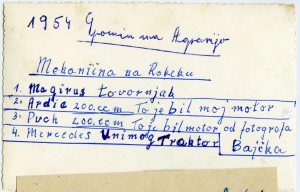 1954 Spomin na Agrarijo
Mehanična na Rakeku
1. Magirus tovornjak
2. Ardie 200.ccm To je bil moj motor
3. Puch 200.ccm To je bil motor od fotografa
4. Mercedes Unimog Traktor Bajčka